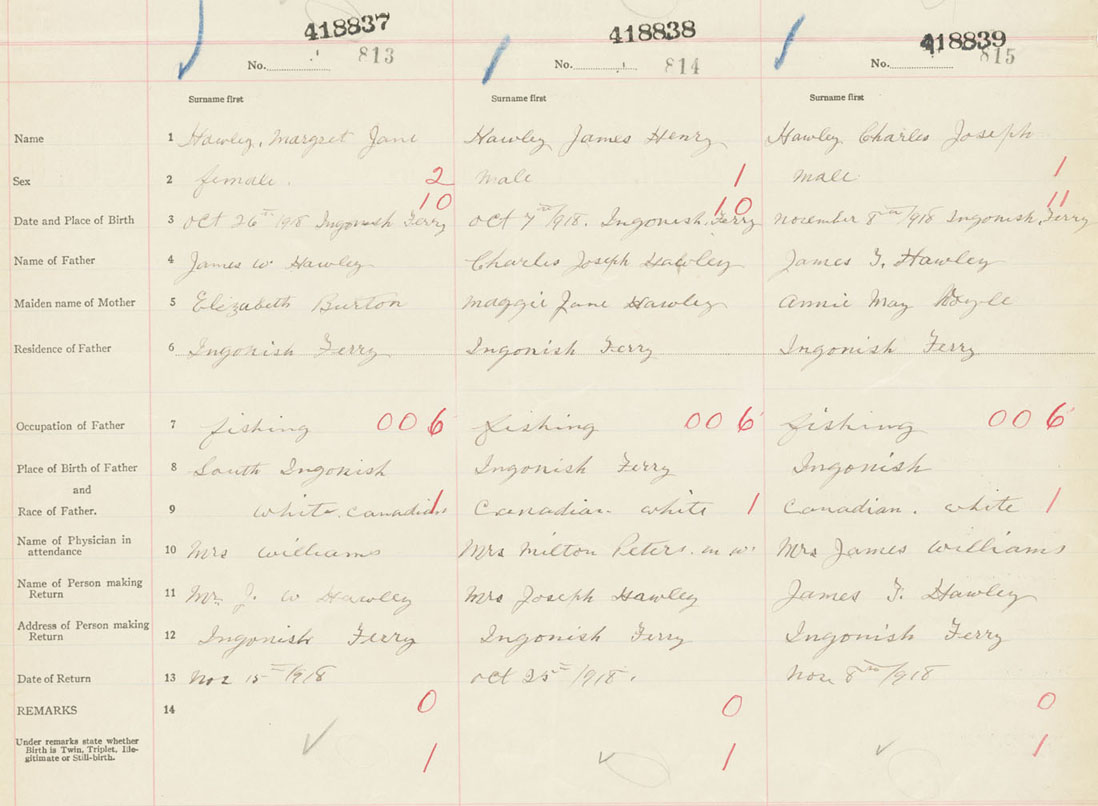 418837 418838 418839
No. 813 No. 814 No. 815
Surname first Surname first Surname first
Name 1 Hawley, Margret Jane Hawley James Henry Hawley Charles Joseph
Sex 2 female. 2 male 1 male 1
10 10 11
Date and Place of Birth 3 Oct 26th/918 Ingonish Ferry Oct 7th/918. Ingonish. Ferry November 8th/918 Ingonish. Ferry
Name of Father 4 James W Hawley Charles Joseph Hawley James F. Hawley
Maiden name of Mother 5 Elizabeth Burton Maggie Jane Hawley Annie May Doyle
Residence of Father 6 Ingonish Ferry Ingonish Ferry Ingonish Ferry
Occupation of Father 7 fishing 006 fishing 006 fishing 006
Place of Birth of Father 8 South Ingonish Ingonish Ferry Ingonish
and
Race of Father. 9 white. Canadian 1 Canadian. white 1 Canadian. white 1
Name of Physician in
attendance 10 Mrs Williams Mrs Milton Peters. Mrs James Williams
Name of Person making
Return 11 Mr. J. W Hawley Mrs Joseph Hawley James F. Hawley
Address of Person making
Return 12 Ingonish Ferry Ingonish Ferry Ingonish Ferry
Date of Return 13 Nov 15th/918 Oct 25th/918. Nov. 8th/918
REMARKS 14 0 0 0
Under remarks state whether
Birth is Twin, Triplet, Ille-
gitimate or Still-birth. 1 1 1